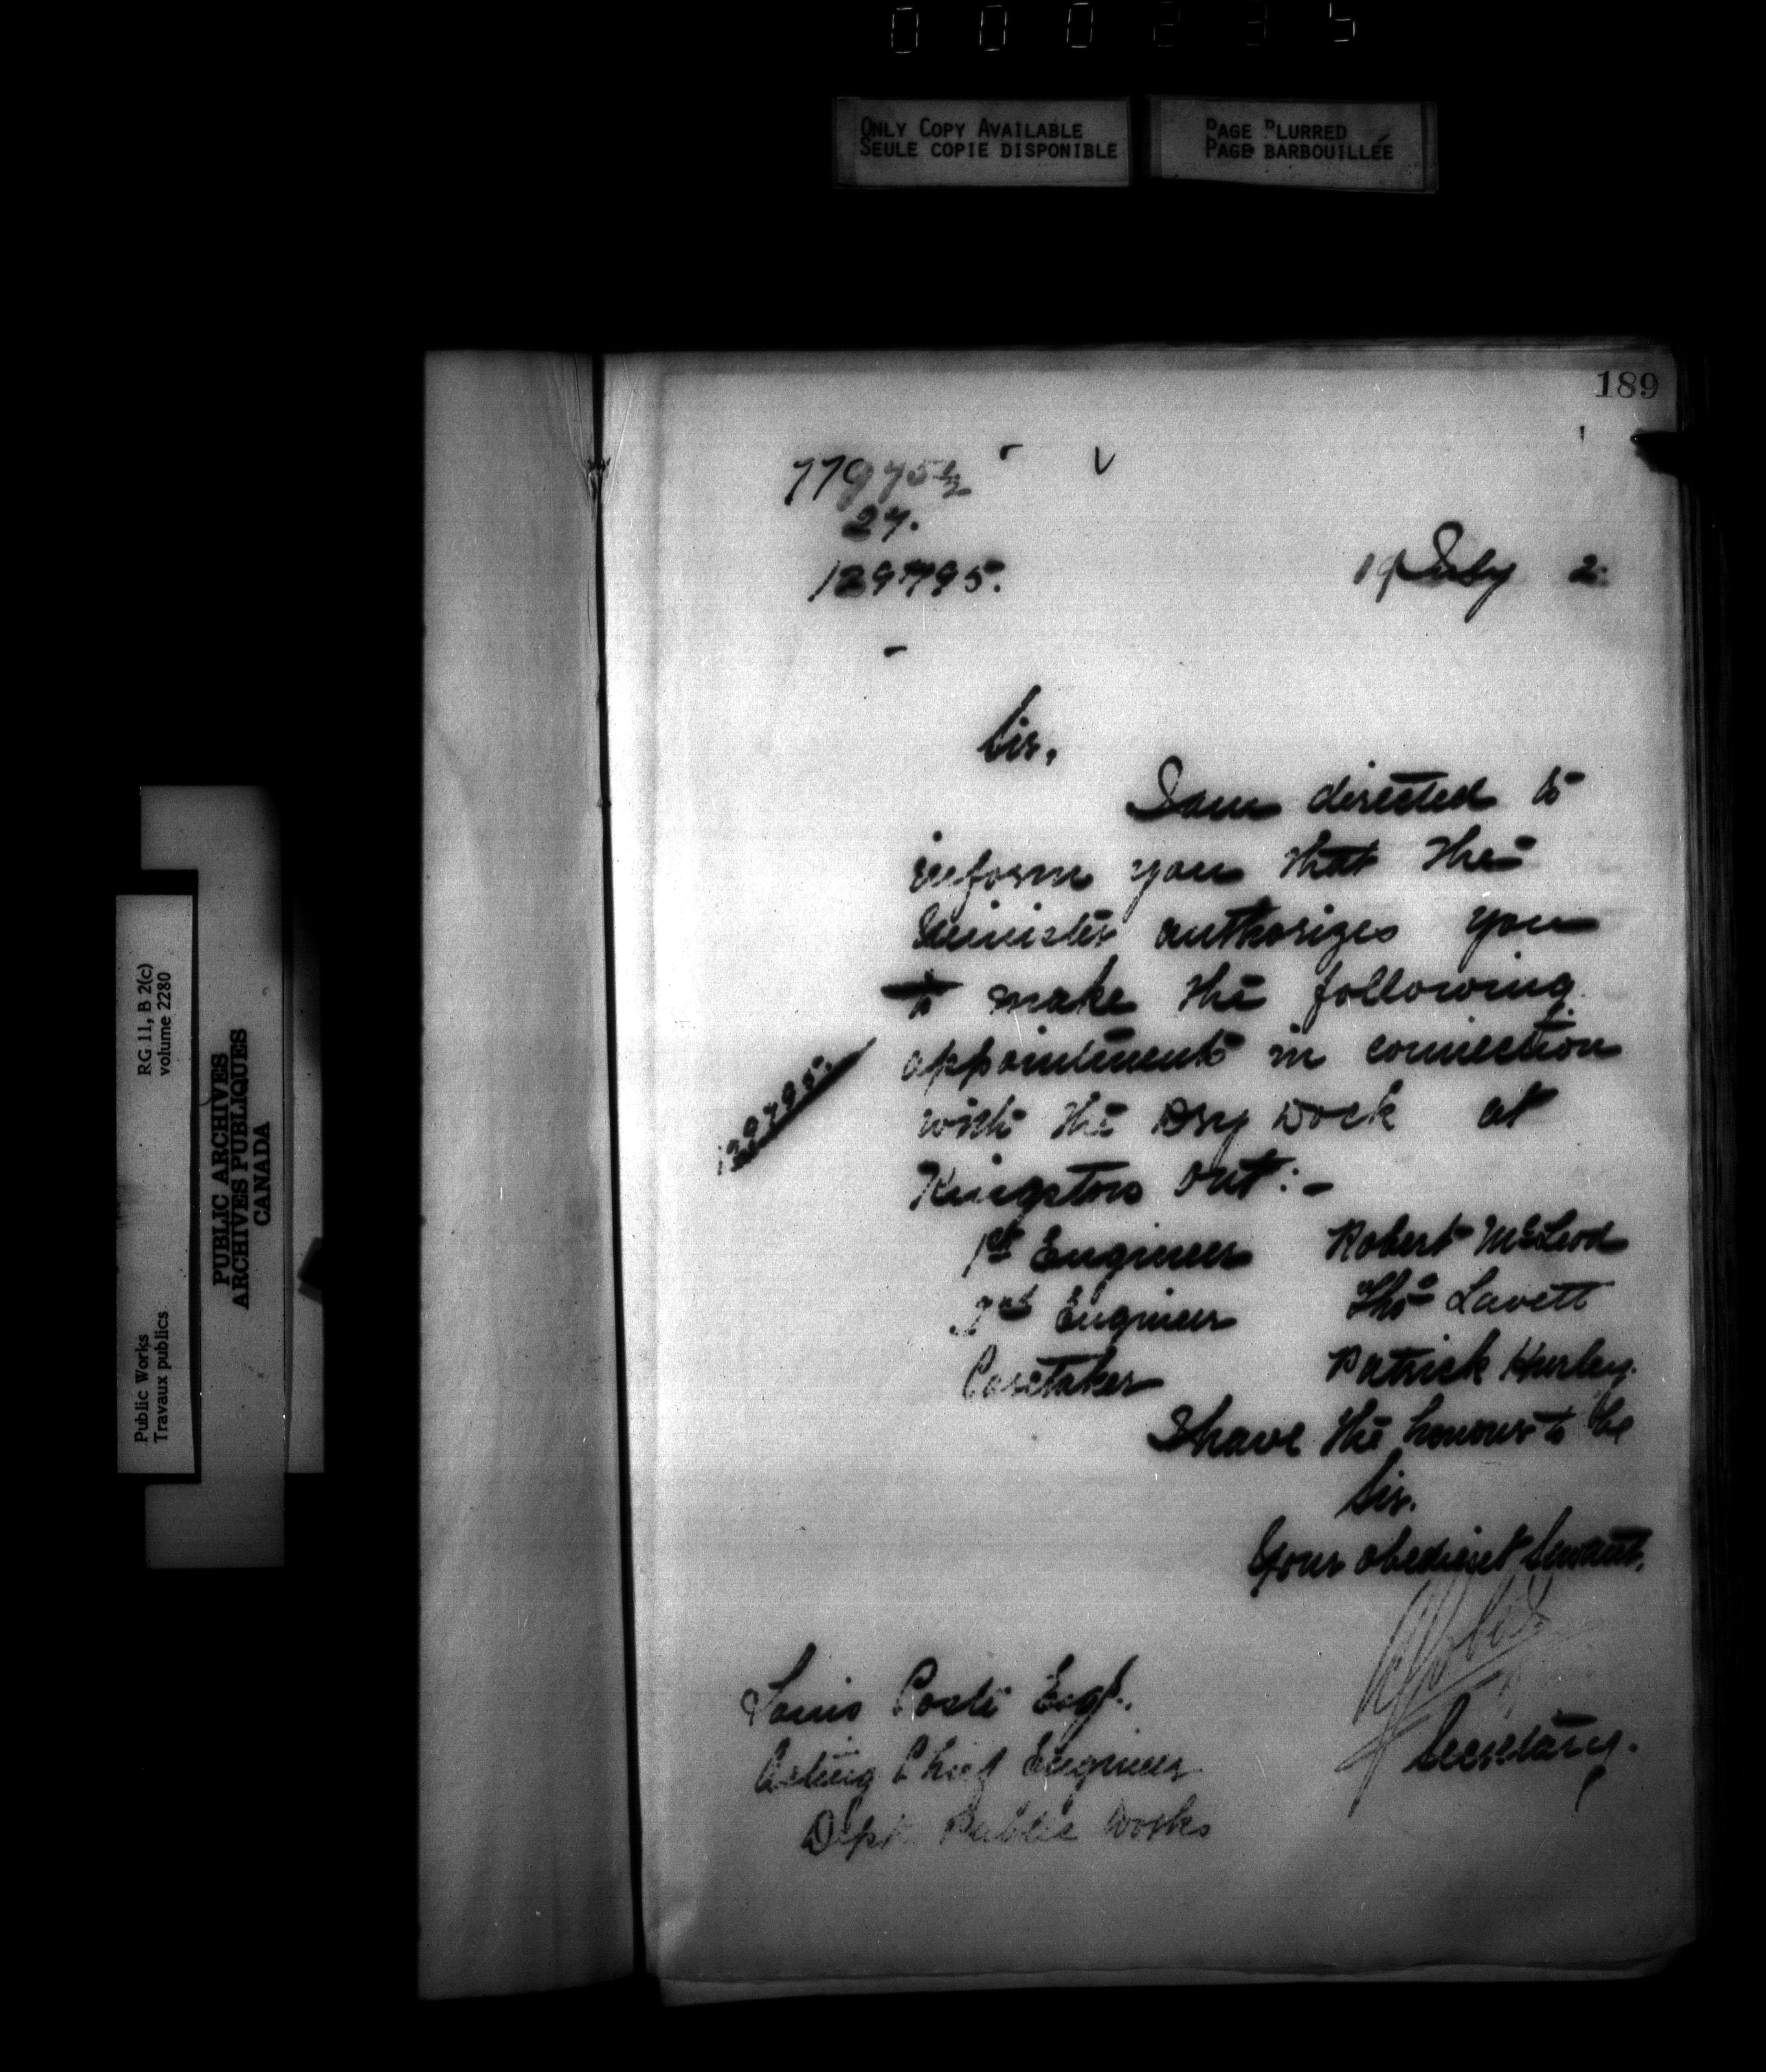 000235
ONLY COPY AVAILABLE
SEULE COPIE DISPONIBLE
PAGE BLURRED
PAGE BARBOUILLÉE
189
77975½
27.
129795.
19 July 2.
Sir,
I am directed to
inform you that the
Minister authorizes you
to make the following
appointments in connection
with the Dry Dock at
Kingston Ont:-
1st Engineer Robert McLeod
2nd Engineer Thos Lavett
Caretaker Patrick Hurley.
I have the honour to be
Sir.
Your obedient Servant,
Secretary.
Louis Coste Esq.,
Acting Chief Engineer
Dept. Public Works
129795.
RG 11, B 2(c)
volume 2280
Public Works
Travaux publics
PUBLIC ARCHIVES
ARCHIVES PUBLIQUES
CANADA